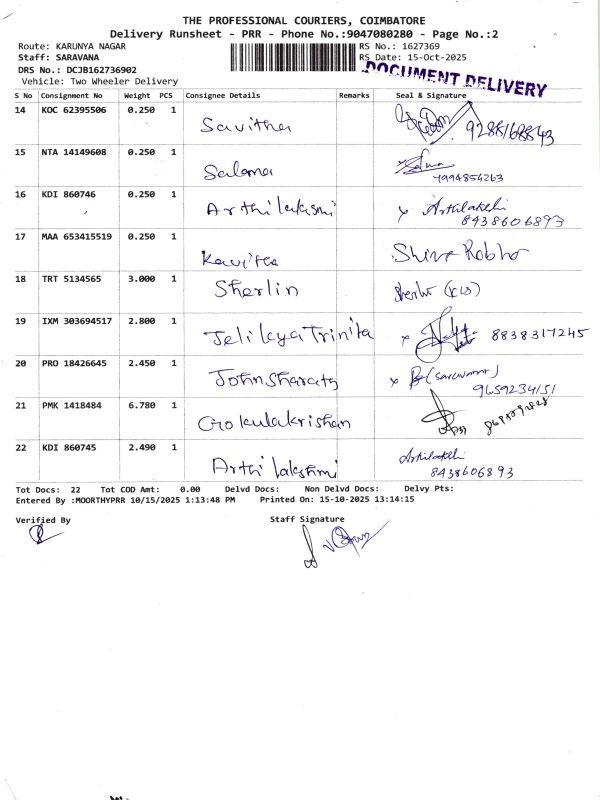 THE PROFESSIONAL COURIERS, COIMBATORE
Delivery Runsheet - PRR - Phone No.:9047080280 - Page No.:2
Route: KARUNYA NAGAR RS No.: 1627369
Staff: SARAVANA RS Date: 15-Oct-2025
DRS No.: DCJB162736902
DOCUMENT DELIVERY
Vehicle: Two Wheeler Delivery
S No Consignment No Weight PCS Consignee Details Remarks Seal & Signature
14 KOC 62395506 0.250 1
Savitha
15 NTA 14149608 0.250 1
Saloma 7994854263
16 KDI 860746 0.250 1
Arthilakshmi 8438606893
17 MAA 653415519 0.250 1
Kavitha Shiva Robho
18 TRT 5134565 3.000 1
Sherlin
19 IXM 303694517 2.800 1
Trinita 8838317245
20 PRO 18426645 2.450 1
Johnsharath (saravanan)
9659234151
21 PMK 1418484 6.780 1
Gokulakrishan
22 KDI 860745 2.490 1
Arthilakshmi 8438606893
Tot Docs: 22 Tot COD Amt: 0.00 Delvd Docs: Non Delvd Docs: Delvy Pts:
Entered By :MOORTHYPRR 10/15/2025 1:13:48 PM Printed On: 15-10-2025 13:14:15
Verified By Staff Signature